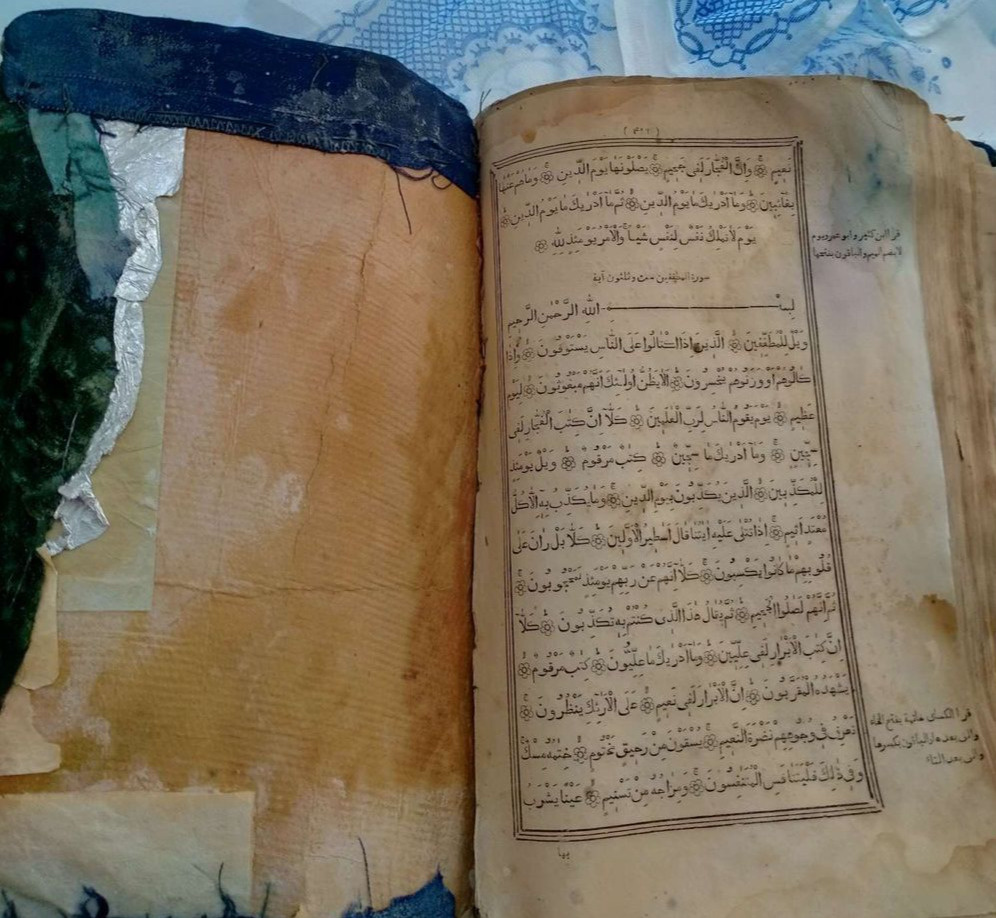 نَعِيمٍ وَاِنَّ الْفُجَّارَ لَفِى جَحِيمٍ يَصْلَوْنَهَا يَوْمَ الدِّينِ وَمَا هُمْ عَنْهَا
بِغَائِبِينَ وَمَا اَدْرٰيكَ مَا يَوْمُ الدِّينِ ثُمَّ مَا اَدْرٰيكَ مَا يَوْمُ الدِّينِ
يَوْمَ لَا تَمْلِكُ نَفْسٌ لِنَفْسٍ شَيْـًٔا وَالْاَمْرُ يَوْمَئِذٍ لِلّٰهِ
قرأ ابن كثير وابو عمرو يوم
لا بضم الميم والباقون بفتحها
سورة المطففين ست وثلثون آية
بِسْمِ اللّٰهِ الرَّحْمٰنِ الرَّحِيمِ
وَيْلٌ لِلْمُطَفِّفِينَ الَّذِينَ اِذَا اكْتَالُوا عَلَى النَّاسِ يَسْتَوْفُونَ وَاِذَا
كَالُوهُمْ اَوْ وَزَنُوهُمْ يُخْسِرُونَ اَلَا يَظُنُّ اُولٰئِكَ اَنَّهُمْ مَبْعُوثُونَ لِيَوْمٍ
عَظِيمٍ يَوْمَ يَقُومُ النَّاسُ لِرَبِّ الْعٰلَمِينَ كَلَّا اِنَّ كِتٰبَ الْفُجَّارِ لَفِى
سِجِّينٍ وَمَا اَدْرٰيكَ مَا سِجِّينٌ كِتٰبٌ مَرْقُومٌ وَيْلٌ يَوْمَئِذٍ
لِلْمُكَذِّبِينَ الَّذِينَ يُكَذِّبُونَ بِيَوْمِ الدِّينِ وَمَا يُكَذِّبُ بِهٖ اِلَّا كُلُّ
مُعْتَدٍ اَثِيمٍ اِذَا تُتْلٰى عَلَيْهِ اٰيٰتُنَا قَالَ اَسٰطِيرُ الْاَوَّلِينَ كَلَّا بَلْ رَانَ عَلٰى
قُلُوبِهِمْ مَا كَانُوا يَكْسِبُونَ كَلَّا اِنَّهُمْ عَنْ رَبِّهِمْ يَوْمَئِذٍ لَمَحْجُوبُونَ
ثُمَّ اِنَّهُمْ لَصَالُوا الْجَحِيمِ ثُمَّ يُقَالُ هٰذَا الَّذِى كُنْتُمْ بِهٖ تُكَذِّبُونَ كَلَّا
اِنَّ كِتٰبَ الْاَبْرَارِ لَفِى عِلِّيِّينَ وَمَا اَدْرٰيكَ مَا عِلِّيُّونَ كِتٰبٌ مَرْقُومٌ
يَشْهَدُهُ الْمُقَرَّبُونَ اِنَّ الْاَبْرَارَ لَفِى نَعِيمٍ عَلَى الْاَرَائِكِ يَنْظُرُونَ
تَعْرِفُ فِى وُجُوهِهِمْ نَضْرَةَ النَّعِيمِ يُسْقَوْنَ مِنْ رَحِيقٍ مَخْتُومٍ خِتٰمُهُ مِسْكٌ
وَفِى ذٰلِكَ فَلْيَتَنَافَسِ الْمُتَنٰفِسُونَ وَمِزَاجُهُ مِنْ تَسْنِيمٍ عَيْنًا يَشْرَبُ
قرأ الكسائى خاتمه بفتح الخاء
والف بعدها والباقون بكسرها
والف بعد التاء
بها